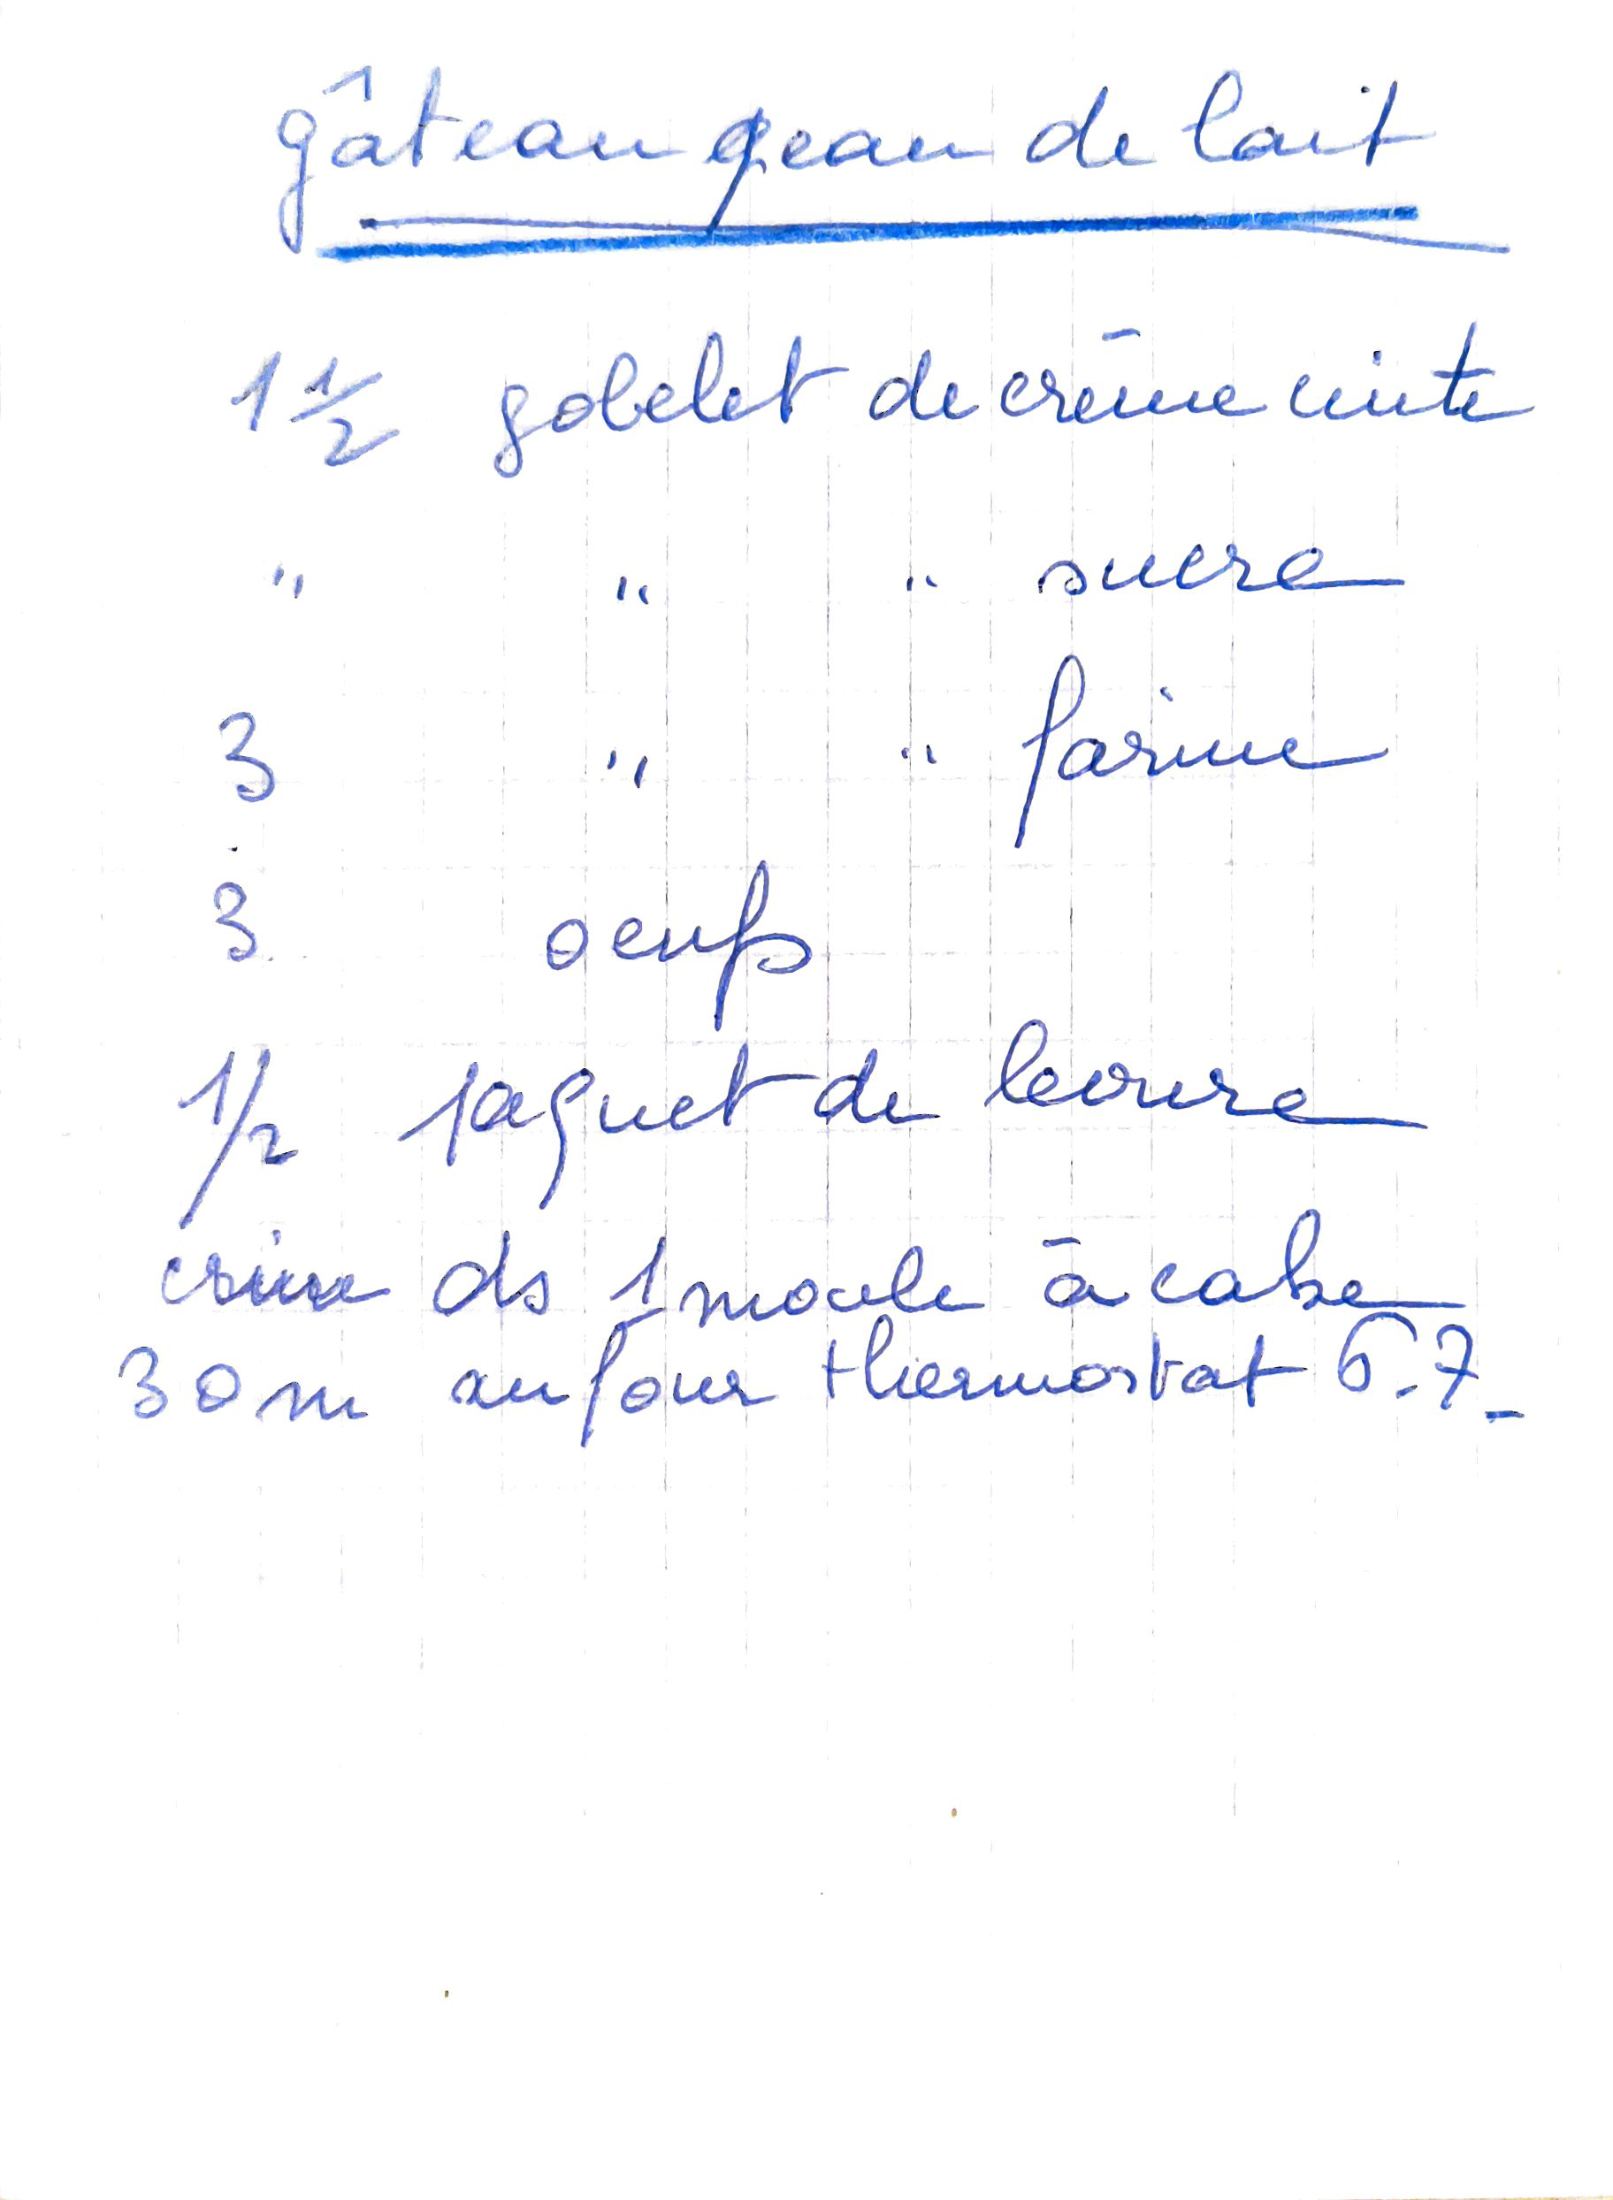 gâteau peau de lait
1 1/2 gobelet de crème cuite
" " " sucre
3 " " farine
3 oeufs
1/2 paquet de levure
cuire ds 1 moule à cake
30 m au four thermostat 6.7_